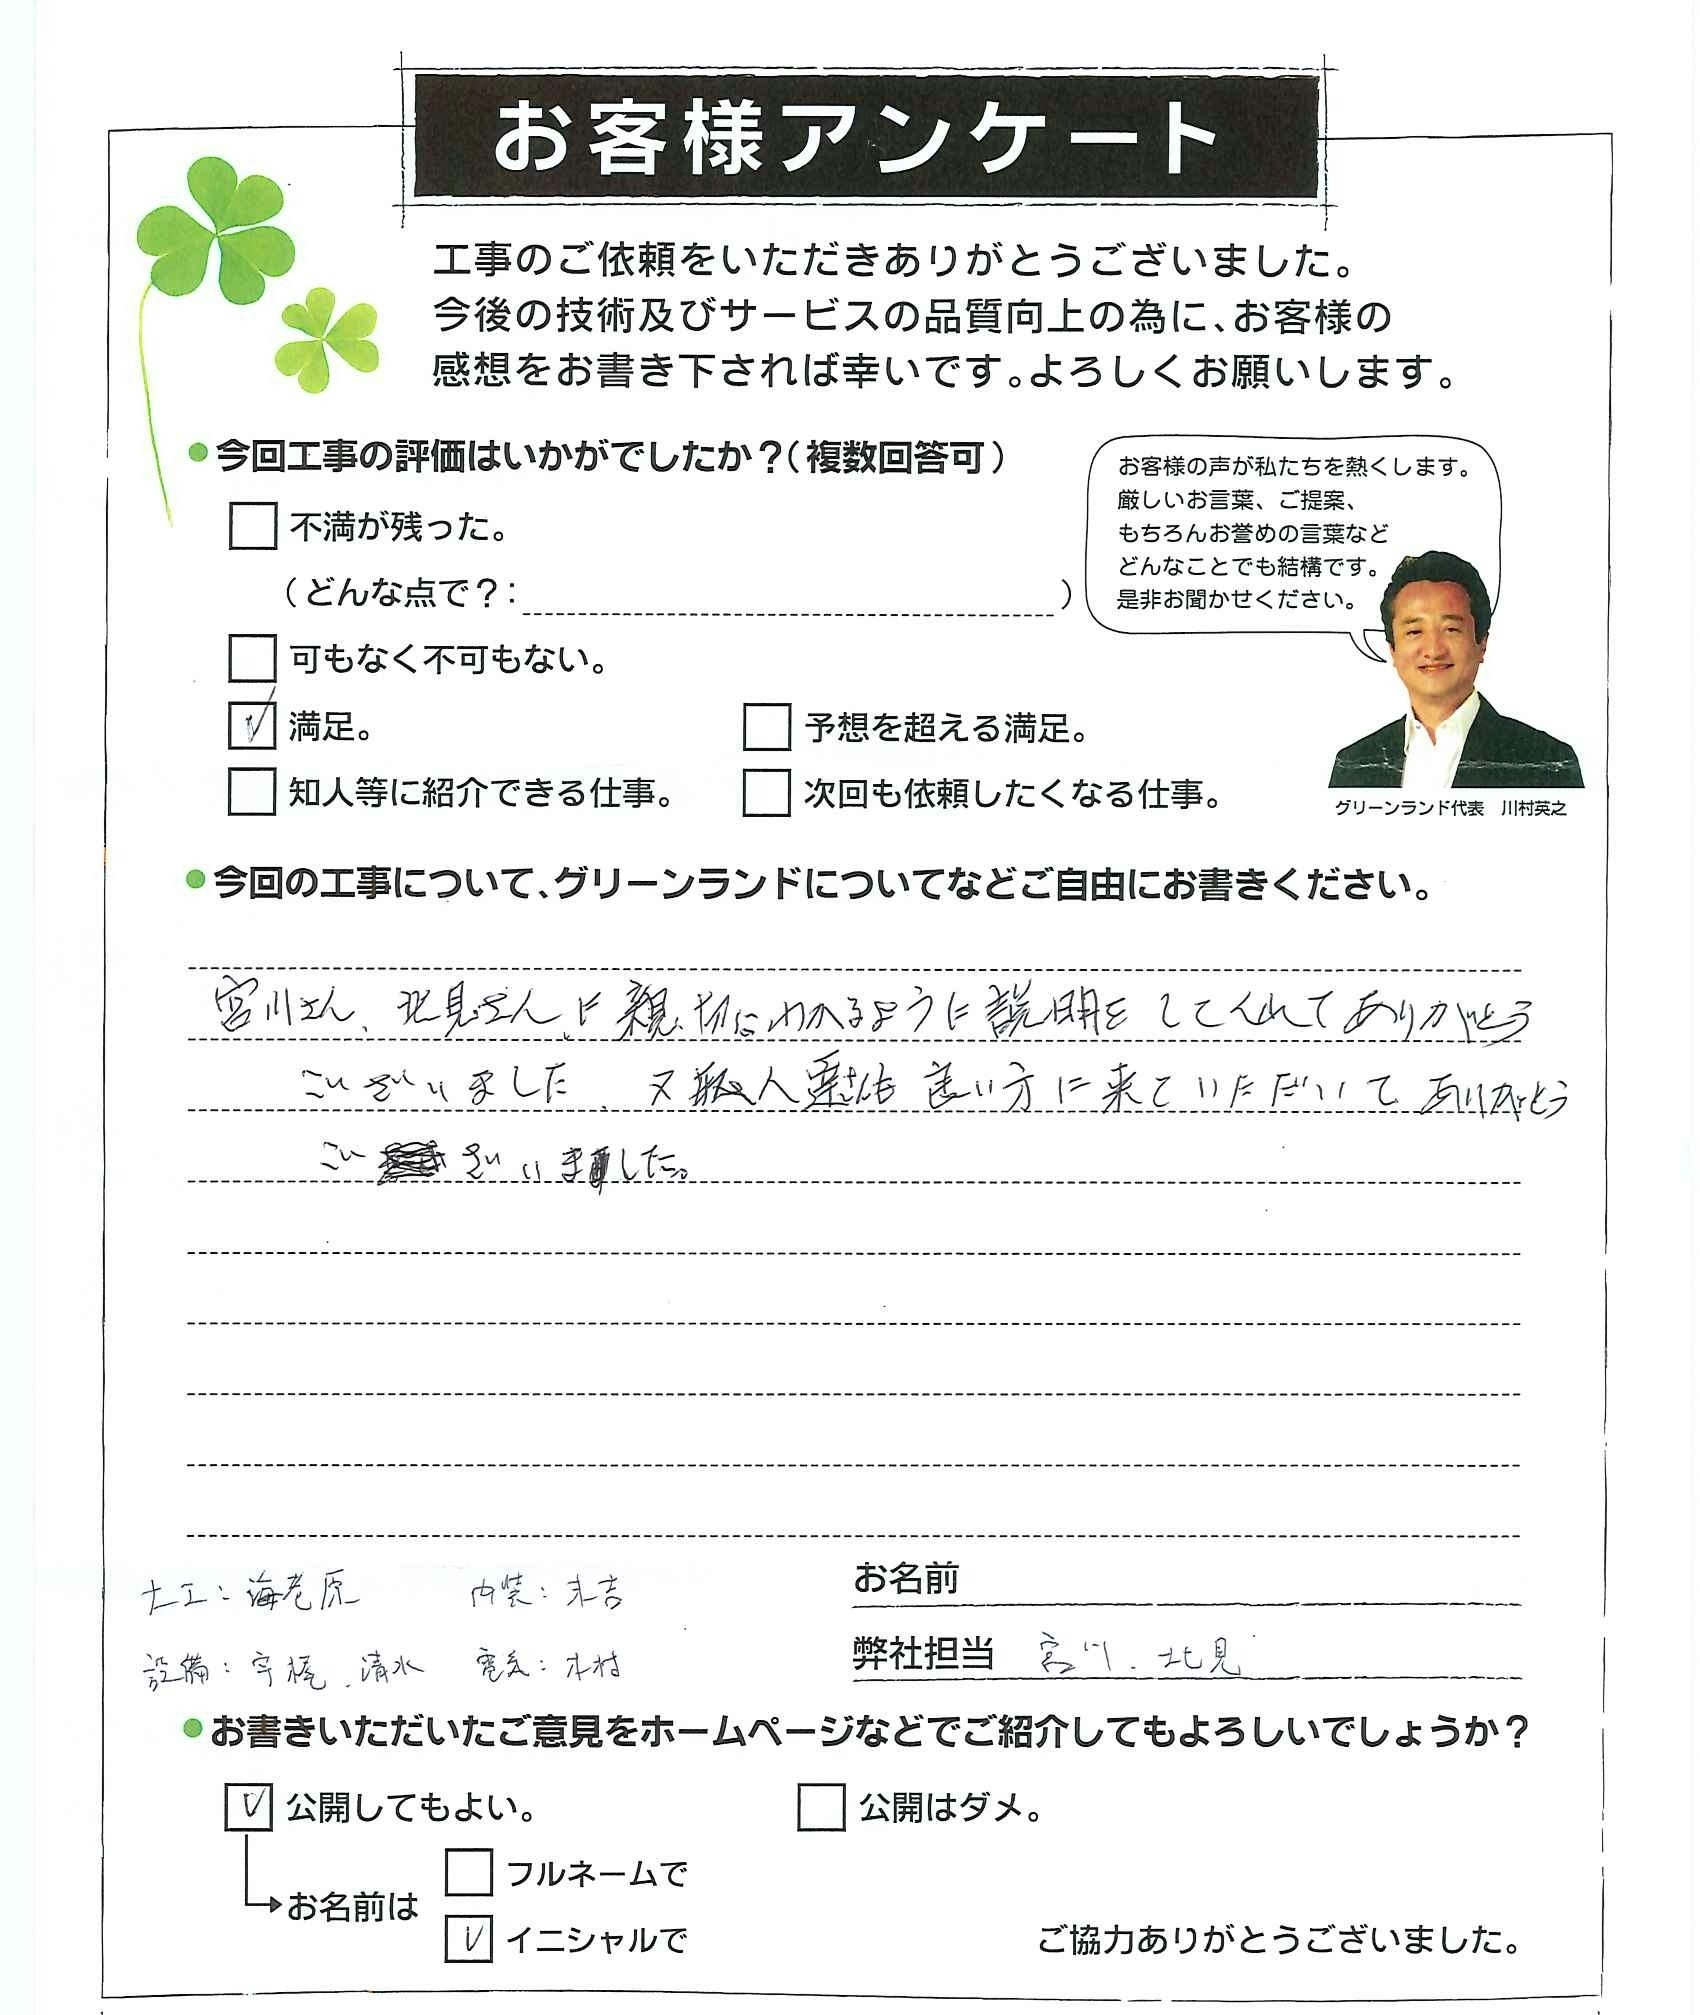 お客様アンケート
工事のご依頼をいただきありがとうございました。
今後の技術及びサービスの品質向上の為に、お客様の
感想をお書き下されば幸いです。よろしくお願いします。
●今回工事の評価はいかがでしたか？（複数回答可）
不満が残った。
（どんな点で？：　）
可もなく不可もない。
満足。
予想を超える満足。
知人等に紹介できる仕事。
次回も依頼したくなる仕事。
お客様の声が私たちを熱くします。
厳しいお言葉、ご提案、
もちろんお誉めの言葉など
どんなことでも結構です。
是非お聞かせください。
グリーンランド代表　川村英之
●今回の工事について、グリーンランドについてなどご自由にお書きください。
宮川さん、北見さんに親切にわかるように説明をしてくれてありがとう
ございました。又職人さんも良い方に来ていただいてありがとう
ございました。
大工：海老原　内装：末吉
設備：　清水　電気：木村
お名前
弊社担当　宮川、北見
●お書きいただいたご意見をホームページなどでご紹介してもよろしいでしょうか？
公開してもよい。
公開はダメ。
お名前は
フルネームで
イニシャルで
ご協力ありがとうございました。